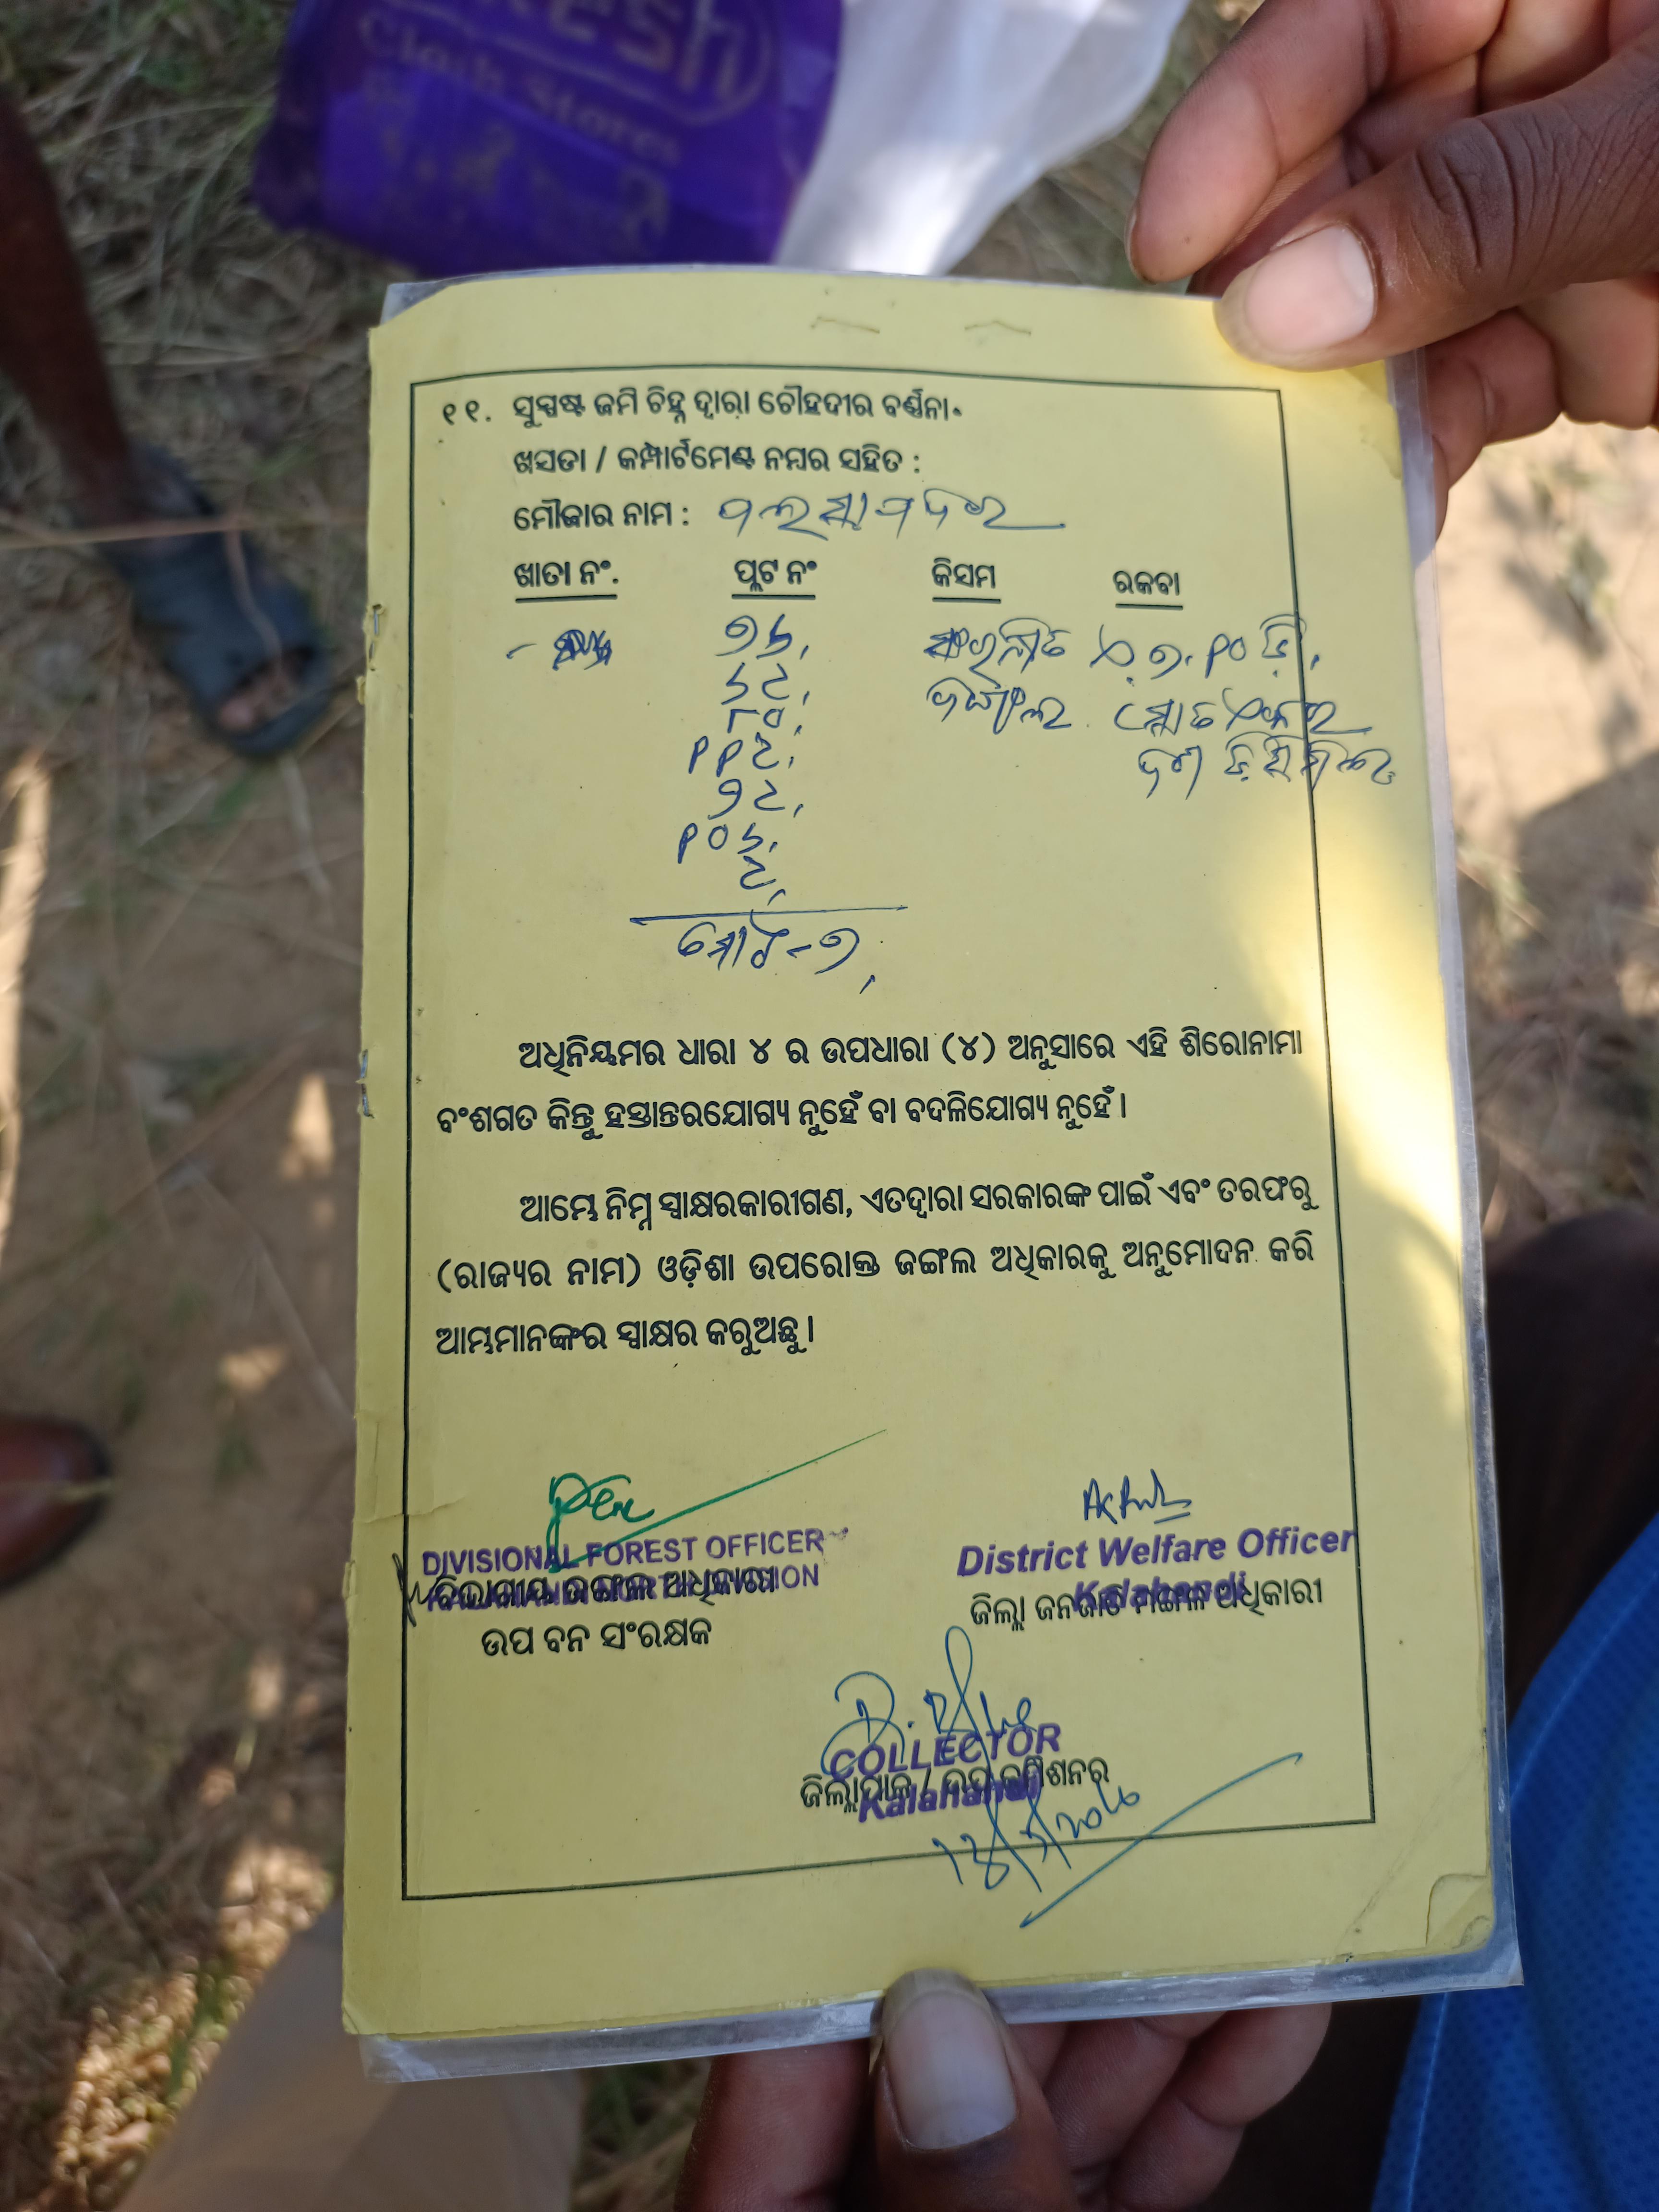 esh
Cloth Stores
୧୧. ସୁସ୍ପଷ୍ଟ ଜମି ଚିହ୍ନ ଦ୍ୱାରା ଚୌହଦୀର ବର୍ଣ୍ଣନା.
ଖସଡା / କମ୍ପାର୍ଟମେଣ୍ଟ ନମ୍ବର ସହିତ :
ମୌଜାର ନାମ :
ଖାତା ନଂ. ପ୍ଲଟ ନଂ କିସମ ରକବା
୭୬,
୬୯,
୮୦,
୧୧୯,
୭୯,
୧୦୬,
୯,
ମୋଟ-୭,
ଅଧିନିୟମର ଧାରା ୪ ର ଉପଧାରା (୪) ଅନୁସାରେ ଏହି ଶିରୋନାମା
ବଂଶଗତ କିନ୍ତୁ ହସ୍ତାନ୍ତରଯୋଗ୍ୟ ନୁହେଁ ବା ବଦଳିଯୋଗ୍ୟ ନୁହେଁ ।
ଆମ୍ଭେ ନିମ୍ନ ସ୍ୱାକ୍ଷରକାରୀଗଣ, ଏତଦ୍ୱାରା ସରକାରଙ୍କ ପାଇଁ ଏବଂ ତରଫରୁ
(ରାଜ୍ୟର ନାମ) ଓଡ଼ିଶା ଉପରୋକ୍ତ ଜଙ୍ଗଲ ଅଧିକାରକୁ ଅନୁମୋଦନ କରି
ଆମ୍ଭମାନଙ୍କର ସ୍ୱାକ୍ଷର କରୁଅଛୁ ।
DIVISIONAL FOREST OFFICER
ବିଭାଗୀୟ ଜଙ୍ଗଲ ଅଧିକାରୀ
ଉପ ବନ ସଂରକ୍ଷକ
District Welfare Officer
Kalahandi
ଜିଲ୍ଲା ଜନଜାତି ମଙ୍ଗଳ ଅଧିକାରୀ
COLLECTOR
Kalahandi
ଜିଲ୍ଲାପାଳ / ଉପ କମିଶନର